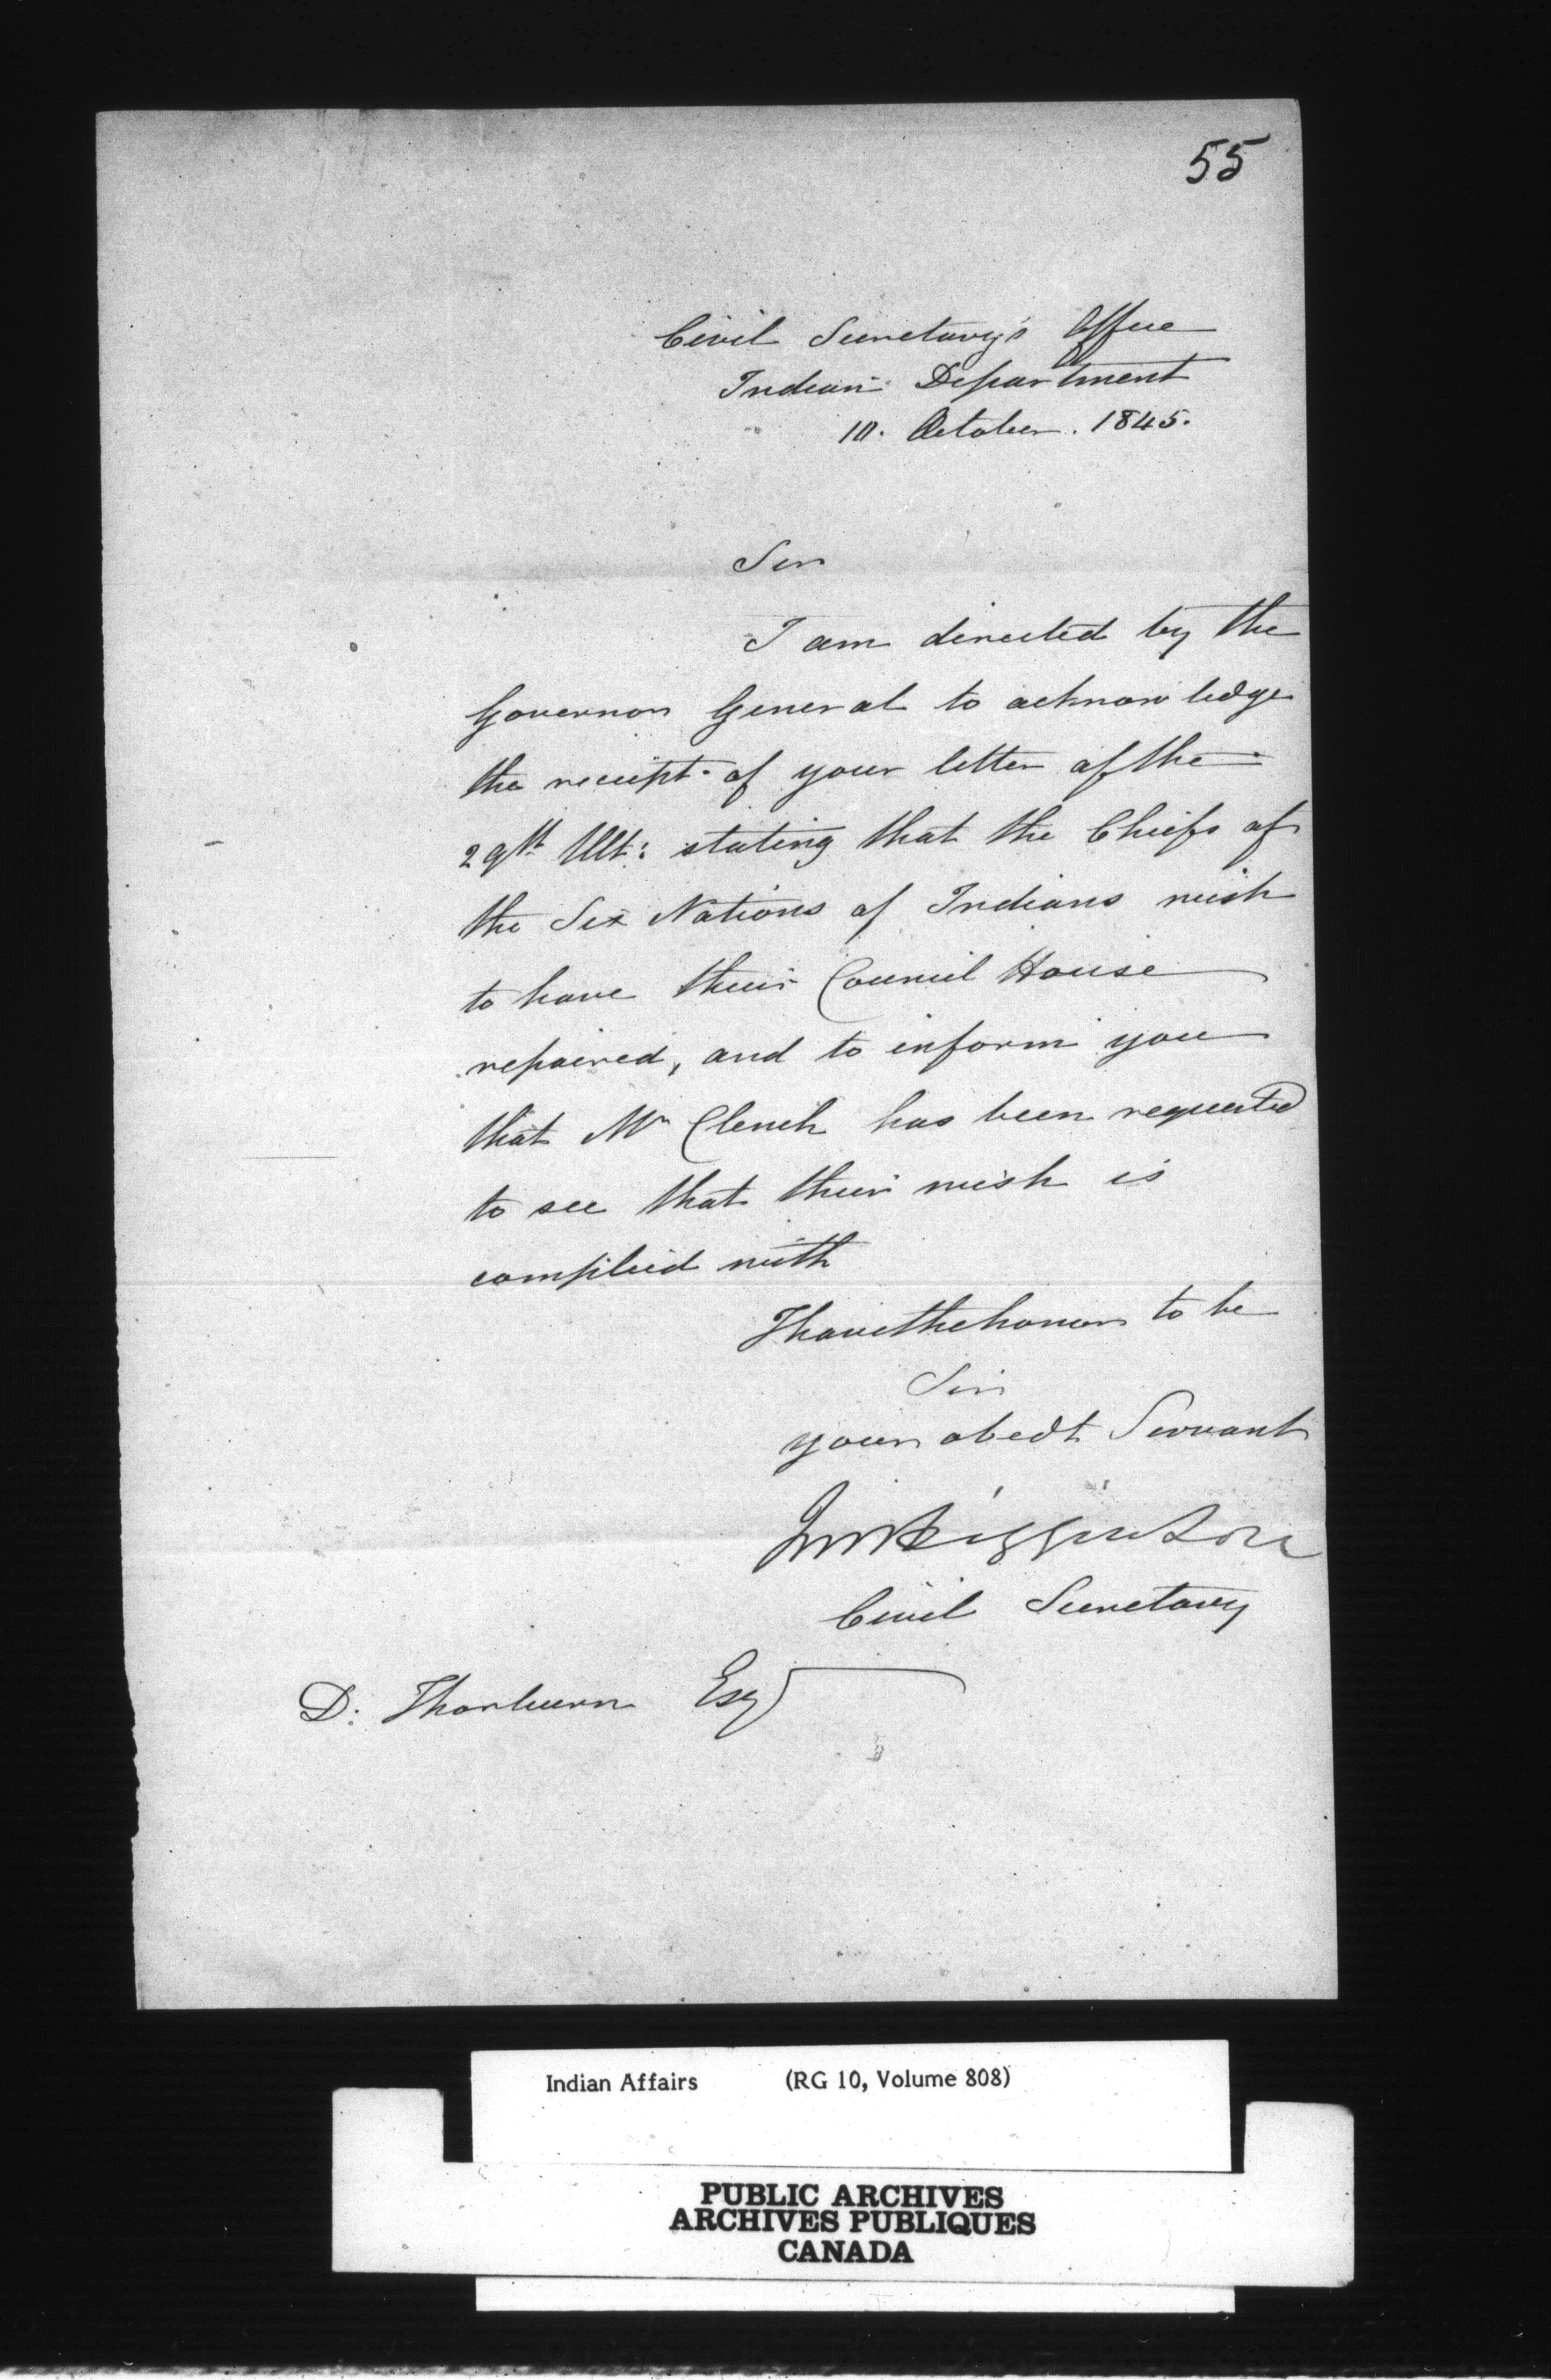 55
Civil Secretary's Office
Indian Department
10. October. 1845.
Sir
I am directed by the
Governor General to acknowledge
the receipt of your letter of the
29th Ult: stating that the Chiefs of
the Six Nations of Indians wish
to have their Council House
repaired, and to inform you
that Mr Clench has been requested
to see that their wish is
complied with
I have the honor to be
Sir
your obedt Servant
JM Higginson
Civil Secretary
D: Thorburn Esq
Indian Affairs (RG 10, Volume 808)
PUBLIC ARCHIVES
ARCHIVES PUBLIQUES
CANADA